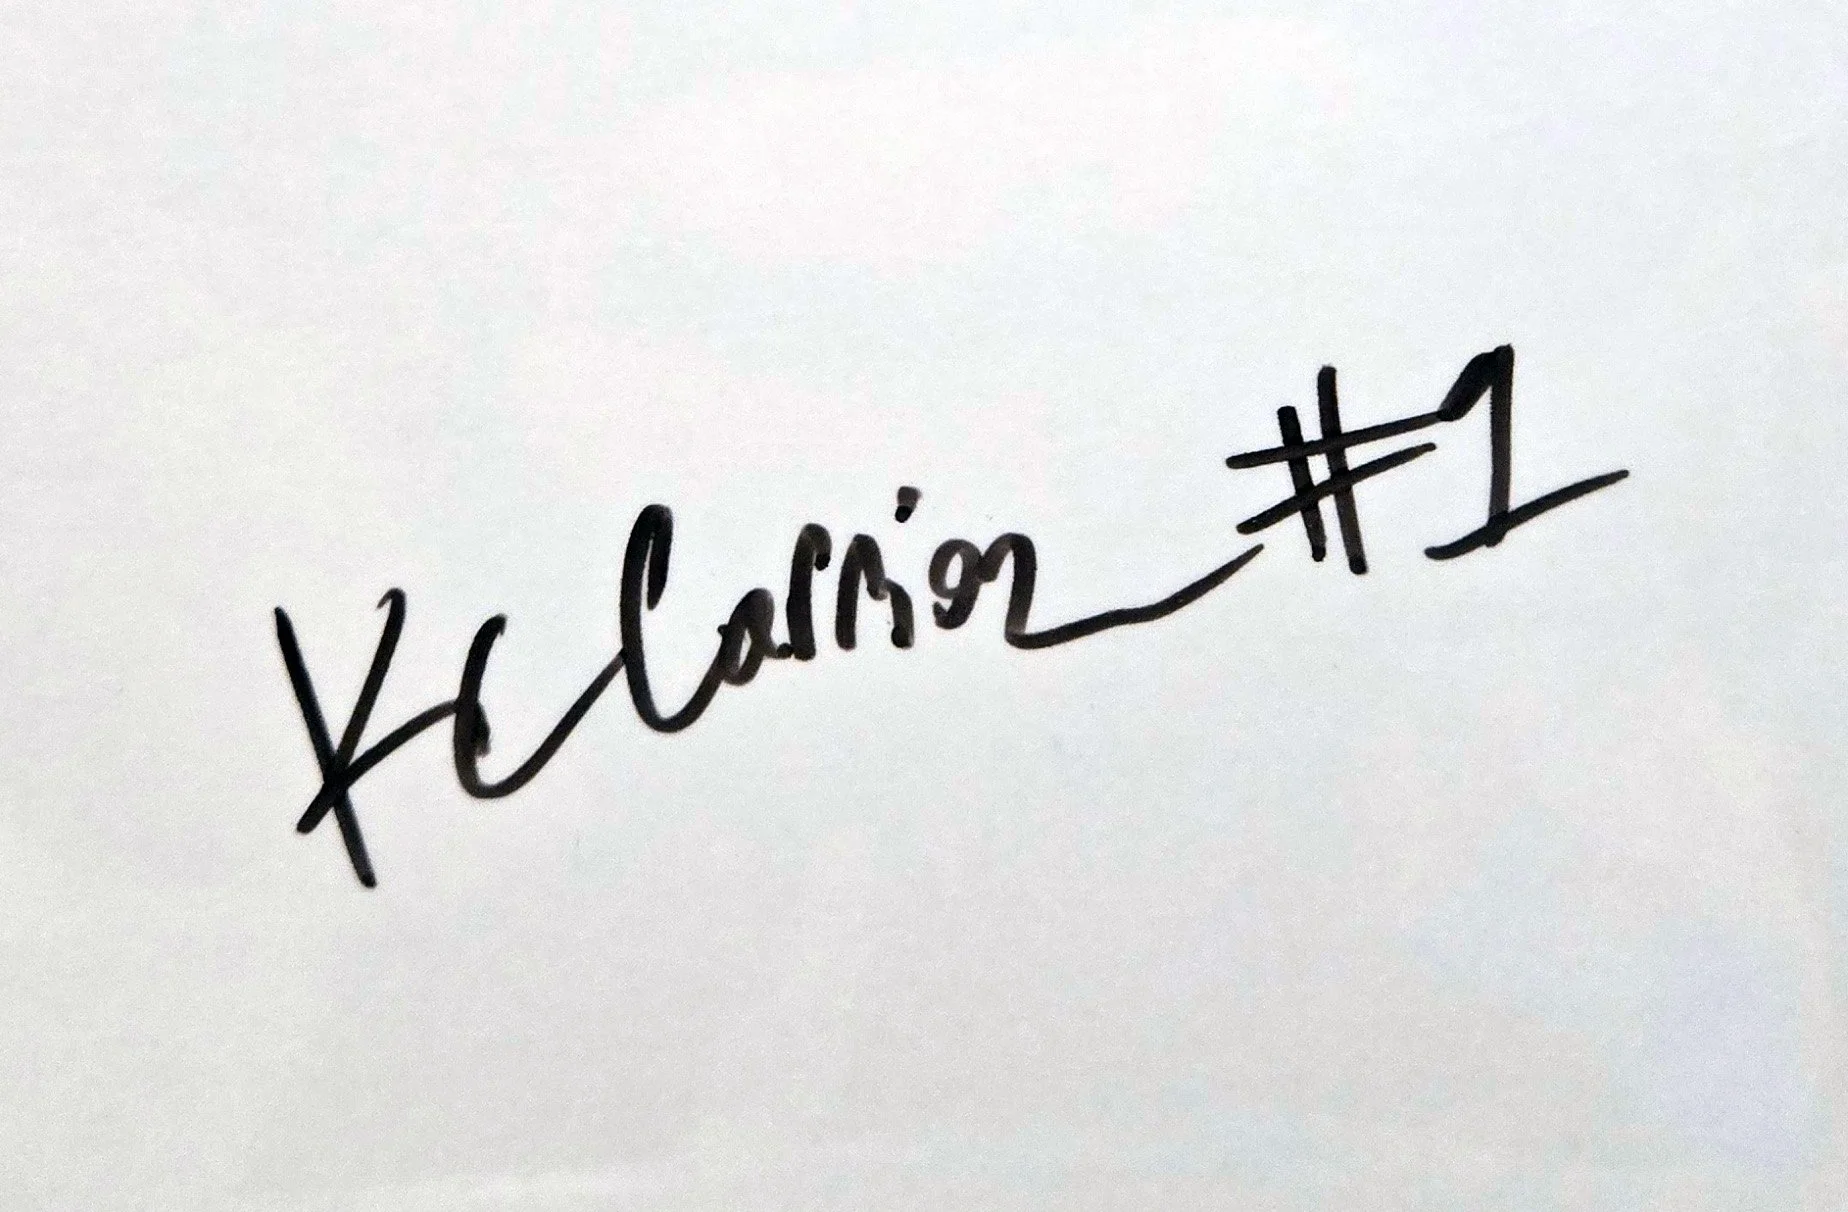 KC Carrion #1